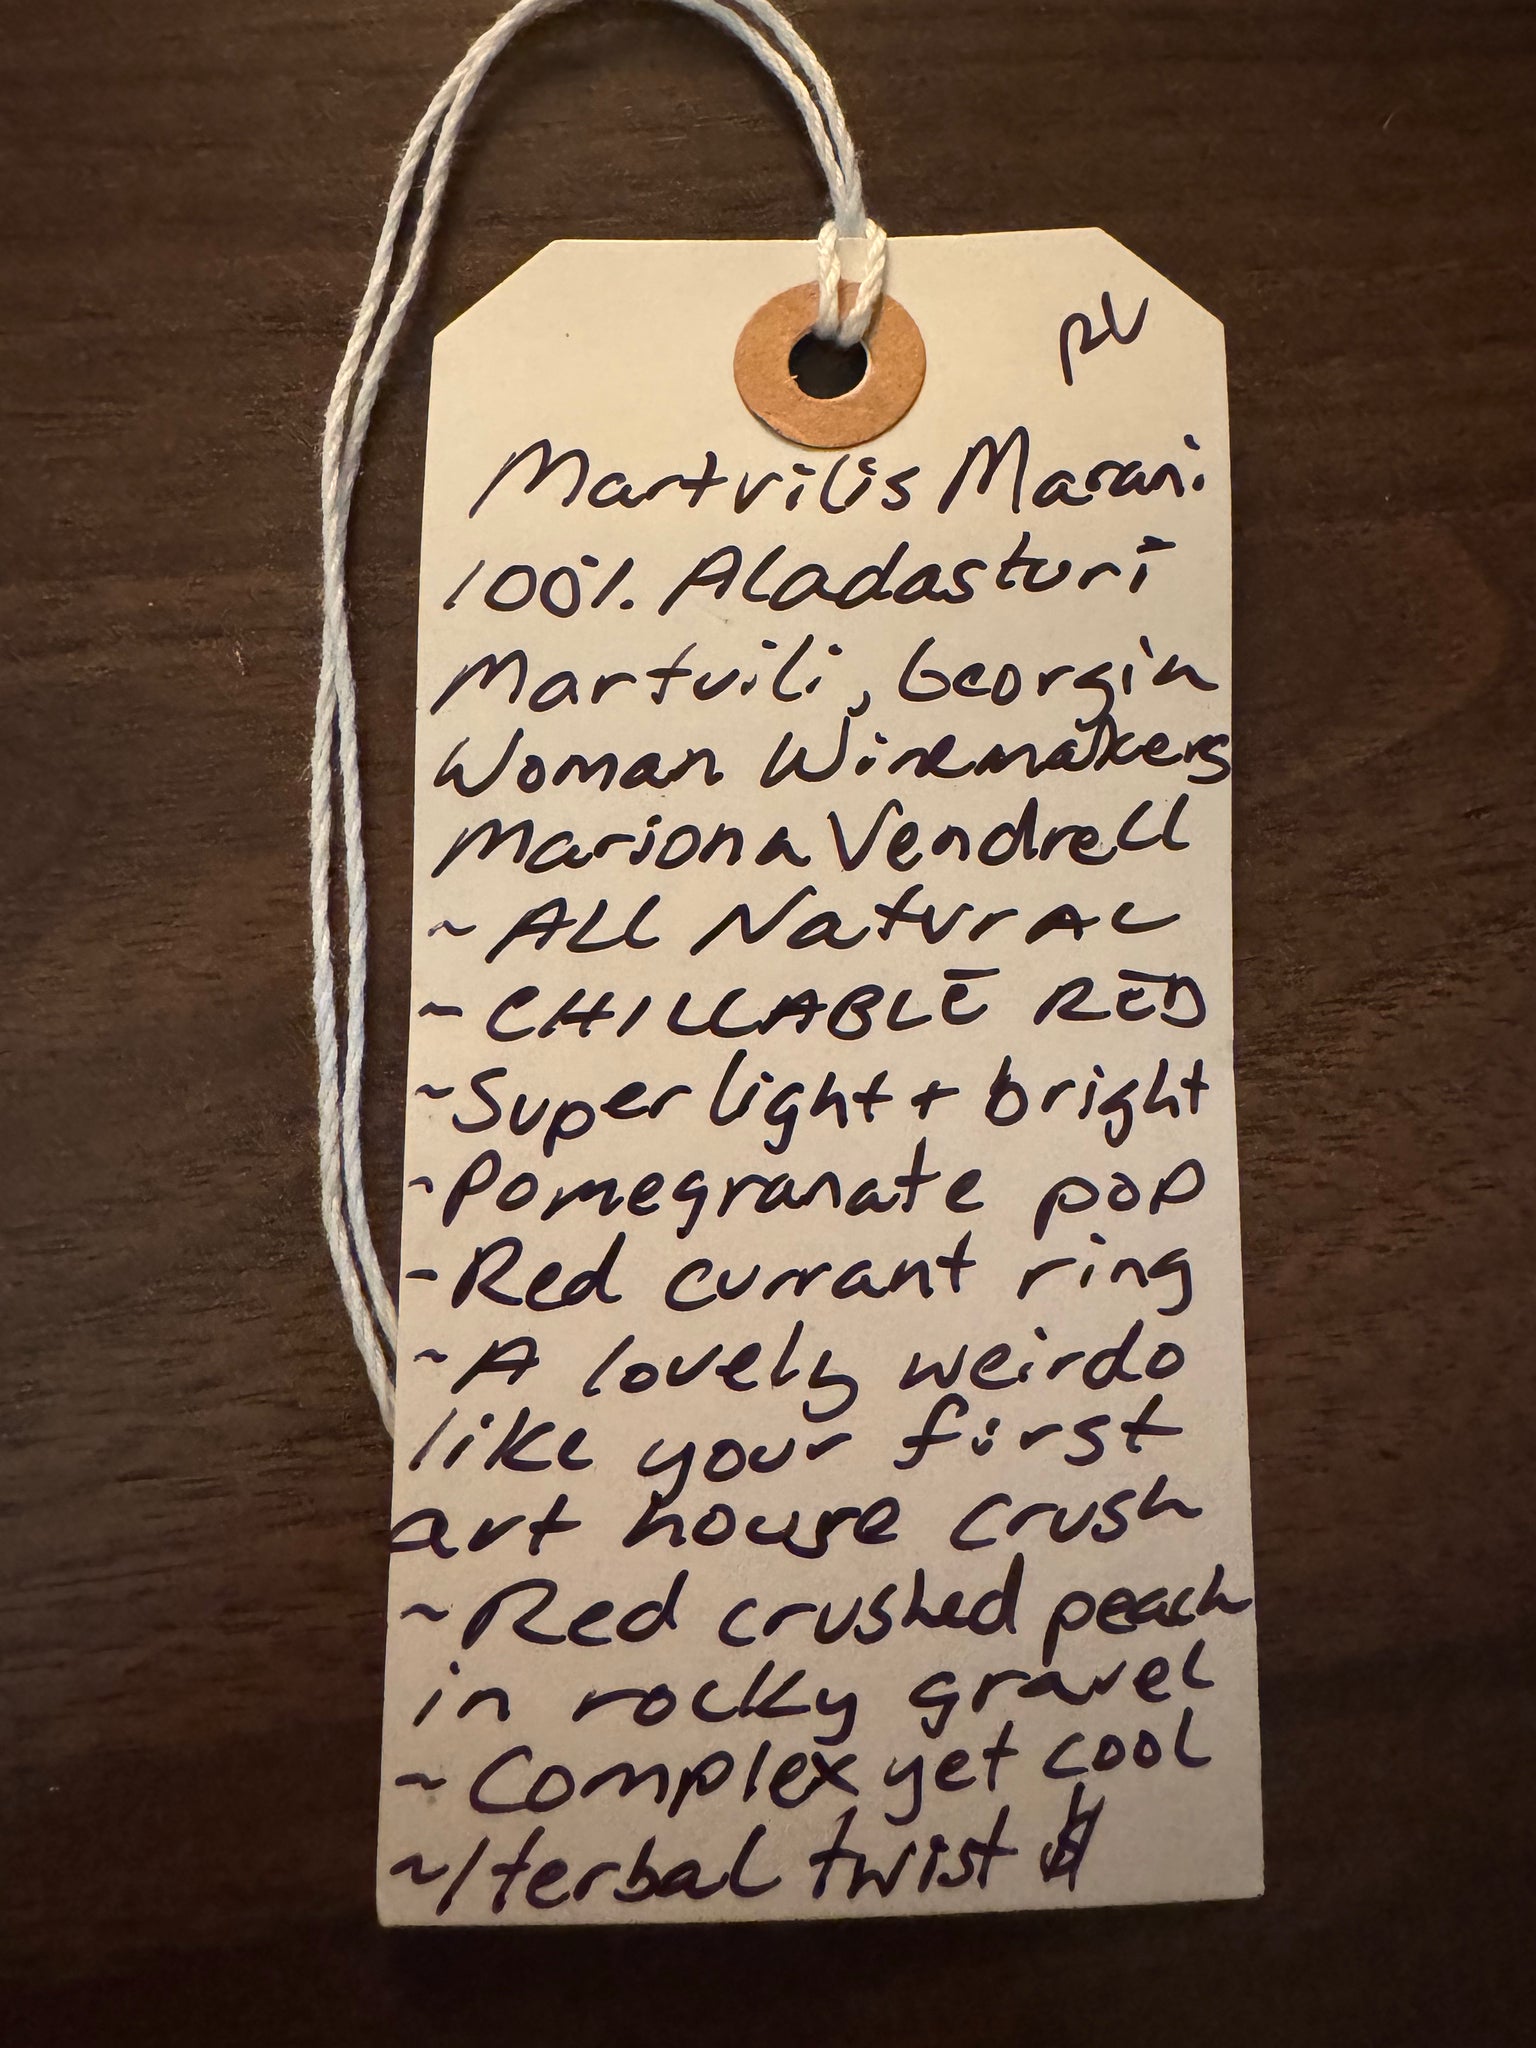 RV
Martvilis Marani
100% Aladasturi
Martvili, Georgia
Woman Winemakers
Mariona Vendrell
~ ALL NaturAL
~ CHILLABLE RED
~ Super light + bright
~ Pomegranate pop
- Red currant ring
~ A lovely weirdo
like your first
art house crush
~ Red crushed peach
in rocky gravel
~ Complex yet cool
~ Herbal twist